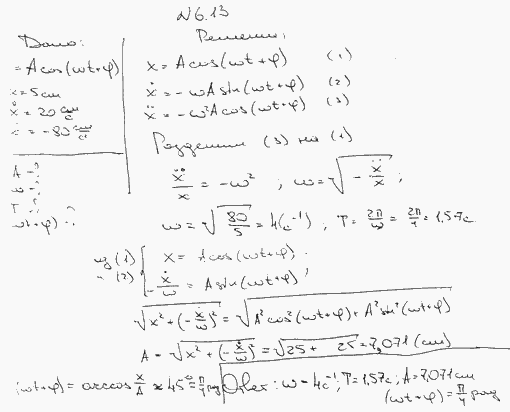 N6.13
Дано:
= Acos(ωt+φ)
x=5см
ẋ = 20 см/с
= -80 см/с
A - ?
ω - ?
T - ?
ωt+φ) - ?
Решение:
x = Acos(ωt+φ) (1)
ẋ = -ωAsin(ωt+φ) (2)
ẍ = -ω²Acos(ωt+φ) (3)
Разделим (3) на (1)
ẍ/x = -ω² ; ω = √(-ẍ/x) ;
ω = √(80/5) = 4(c⁻¹) ; T = 2π/ω = 2π/4 = 1,57c
из (1) { x = Acos(ωt+φ)
(2) { -ẋ/ω = Asin(ωt+φ)
√(x² + (-ẋ/ω)²) = √(A²cos²(ωt+φ) + A²sin²(ωt+φ))
A = √(x² + (-ẋ/ω)²) = √(25 + 25) = 7,071 (см)
(ωt+φ) = arccos x/A ≈ 45° = π/4 рад
Ответ: ω = 4c⁻¹; T = 1,57c; A = 7,071см
(ωt+φ) = π/4 рад